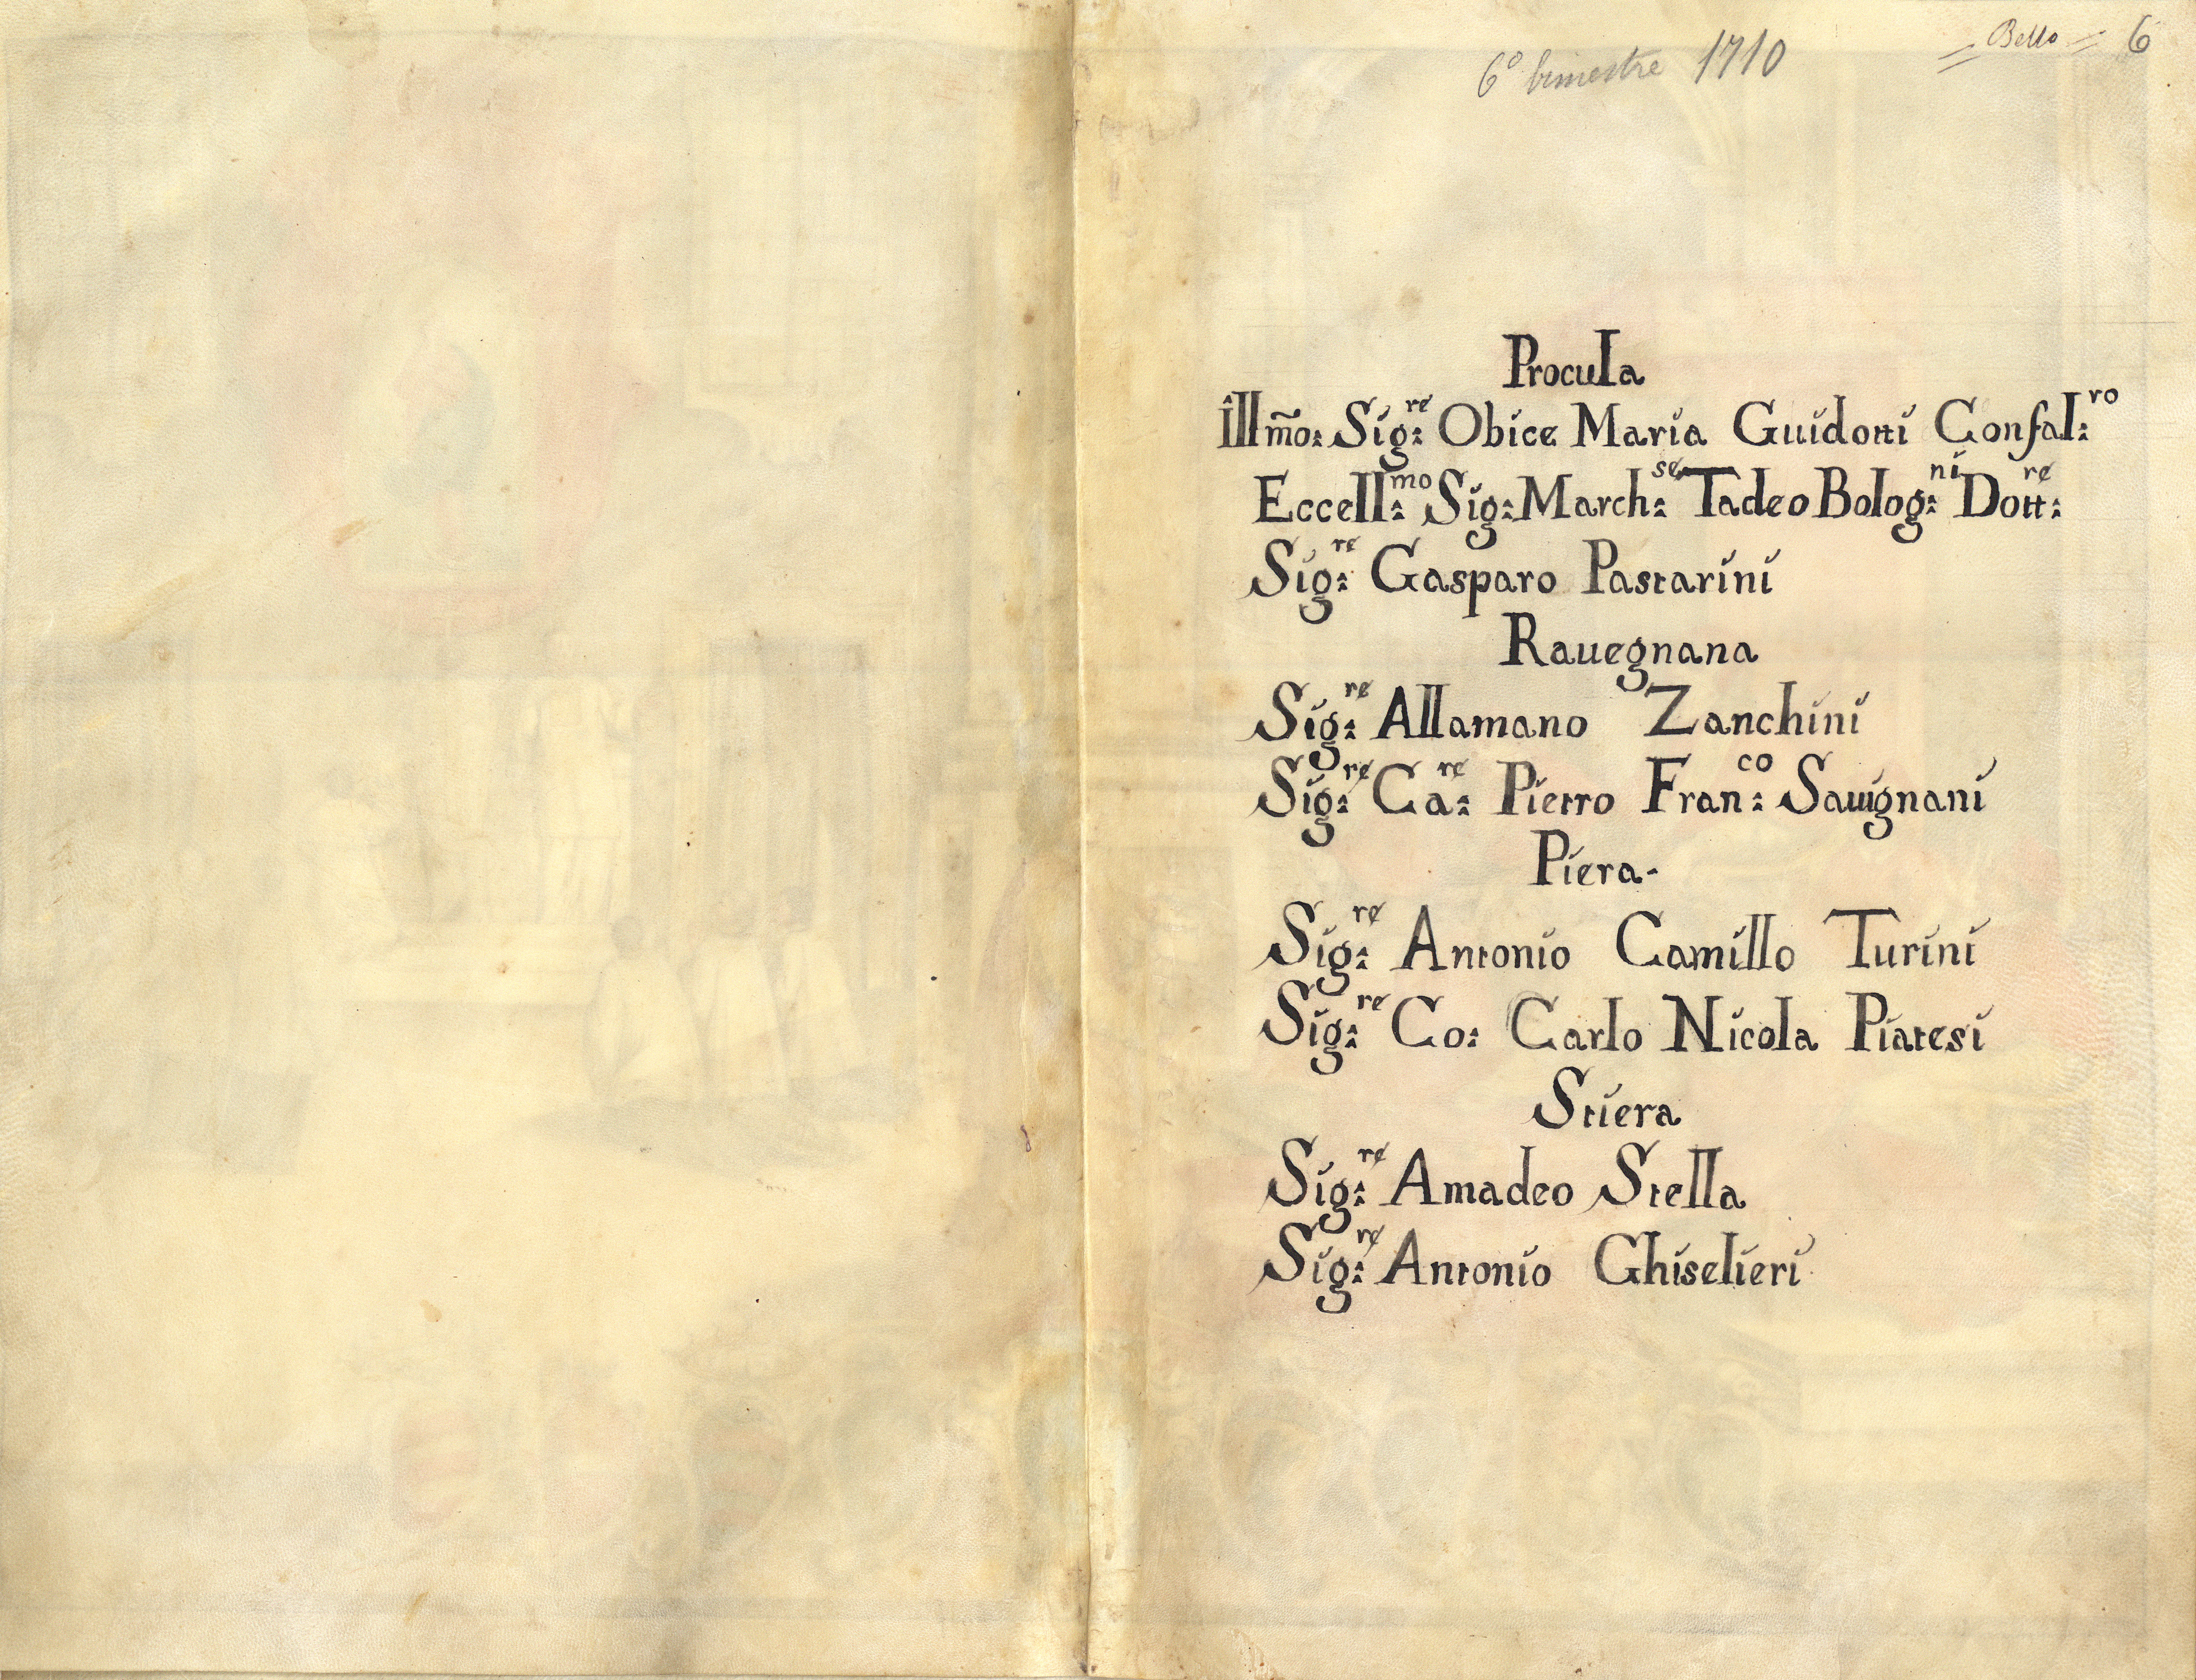 6º bimestre 1710
= Bello = 6
Procula
Illm̃o: Sig:re Obice Maria Guidotti Confal:ro
Eccell:mo Sig: March:se Tadeo Bolog:ni Dott:re
Sig:re Gasparo Pastarini
Rauegnana
Sig:re Allamano Zanchini
Sig:re Ca:re Pietro Fran:co Sauignani
Piera-
Sig:re Antonio Camillo Turini
Sig:re Co: Carlo Nicola Piatesi
Stiera
Sig:re Amadeo Stella
Sig:re Antonio Ghiselieri